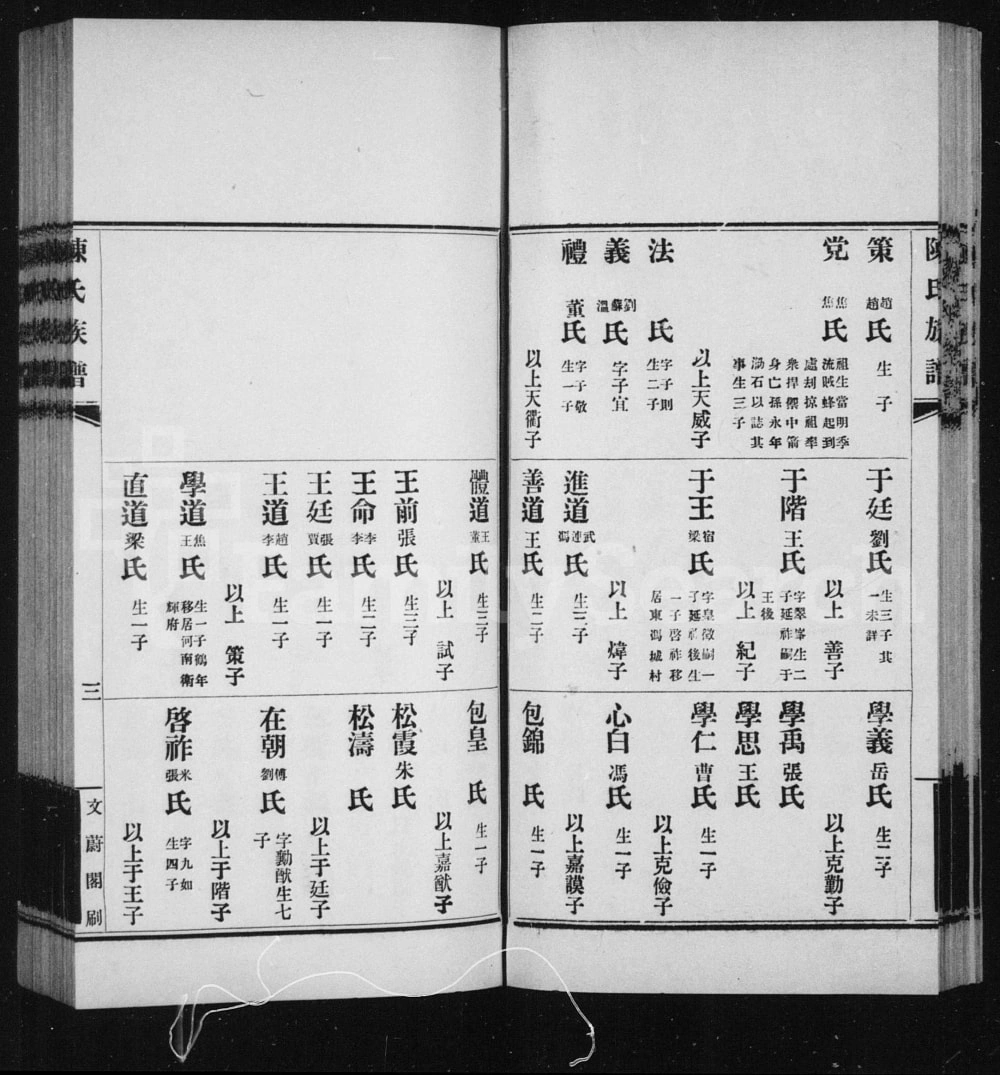 策 趙趙氏 生 子
党 焦焦氏 祖生當明季
流賊蜂起到
處刦掠祖率
衆捍禦中箭
身亡孫永年
泐石以誌其
事生三子
以上天威子
法 氏 字子則
生二子
義 劉蘇溫氏 字子宜
禮 董氏 字子敬
生一子
以上天衢子
于廷 劉氏 生三子其
一未詳
以上 善子
于階 王氏 字翠峯生二
子延祚嗣于
王後
以上 紀子
于王 宿梁氏 字皇徵嗣一
子延祚後生
一子啓祚移
居東馮城村
以上 煒子
進道 武連馮氏 生三子
善道 王氏 生二子
學義 岳氏 生二子
以上克勤子
學禹 張氏
學思 王氏
學仁 曹氏 生一子
以上克儉子
心白 馮氏 生一子
以上嘉謨子
包錦 氏 生一子
陳氏族譜
體道 王董氏 生三子
以上 試子
王前 張氏 生三子
王命 李李氏 生二子
王廷 張賈氏 生一子
王道 趙李氏 生一子
以上 策子
學道 焦王氏 生一子鶴年
移居河南衛
輝府
直道 梁氏 生一子
包皇 氏 生一子
以上嘉猷子
松霞 朱氏
松濤 氏
以上于廷子
在朝 傅劉氏 字勳猷生七
子
以上于階子
啓祚 米張氏 字九如
生四子
以上于王子
陳氏族譜
三
文蔚閣刷